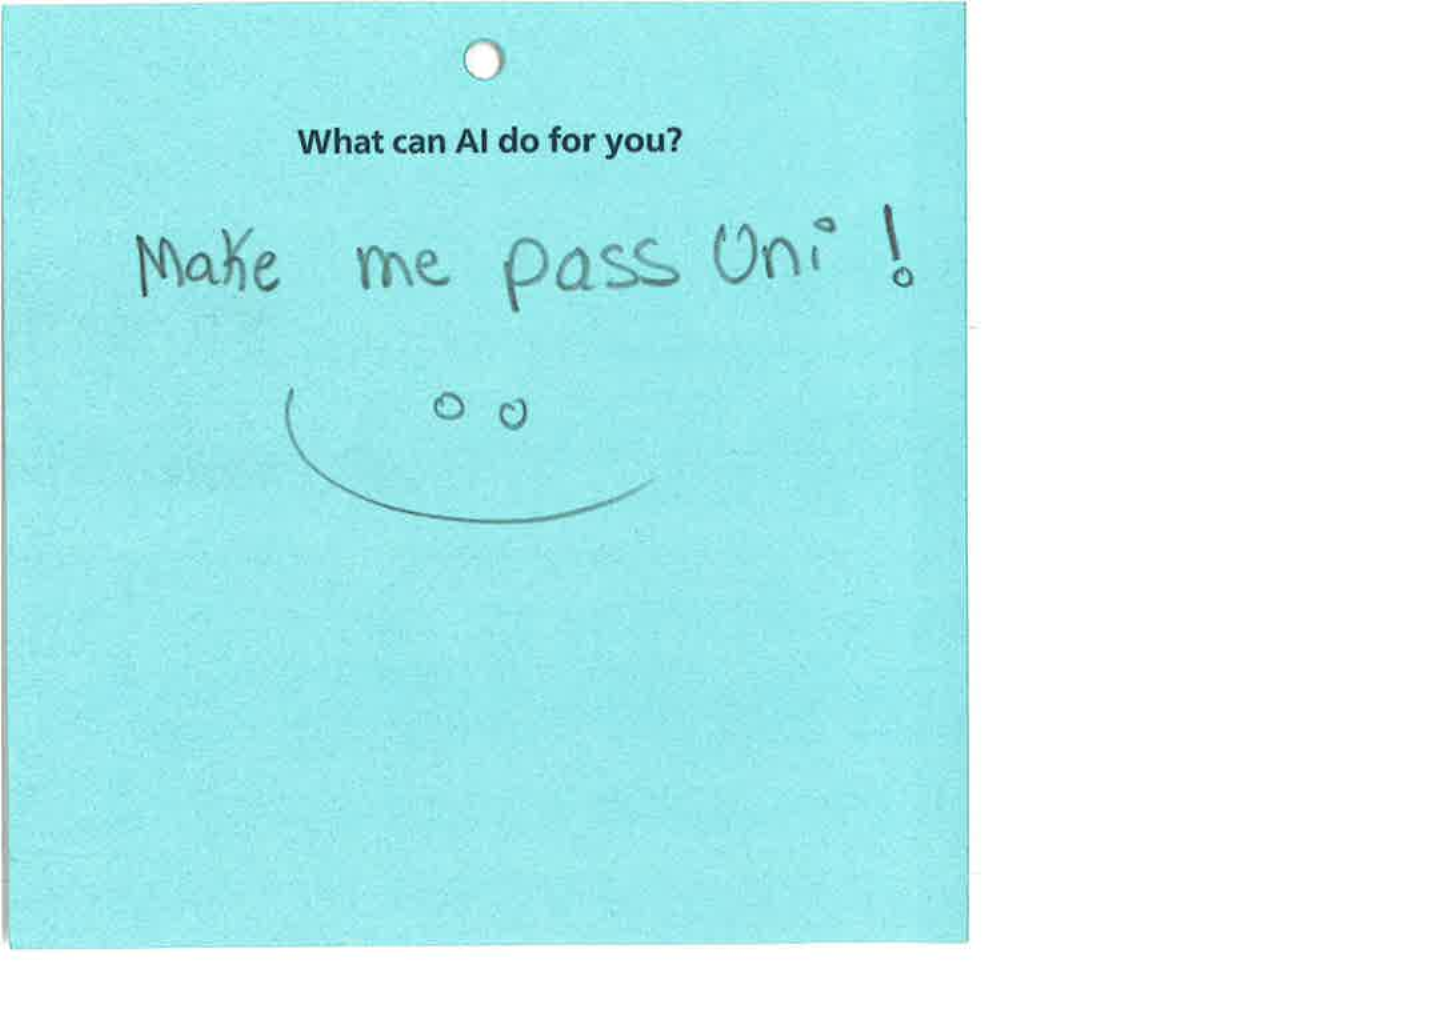 What can AI do for you?
Make me pass Uni!